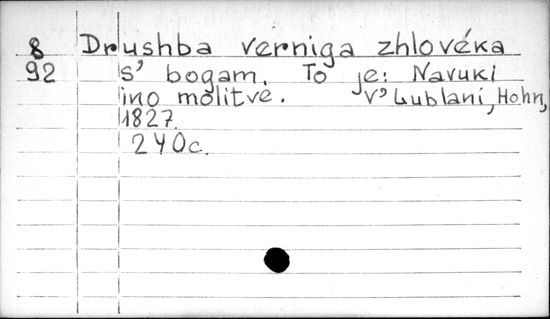 8 Drushba verniga zhlovéka
92 s' bogam. To je: Navuki
ino molitve. V' Lublani, Hohn,
1827.
240c.